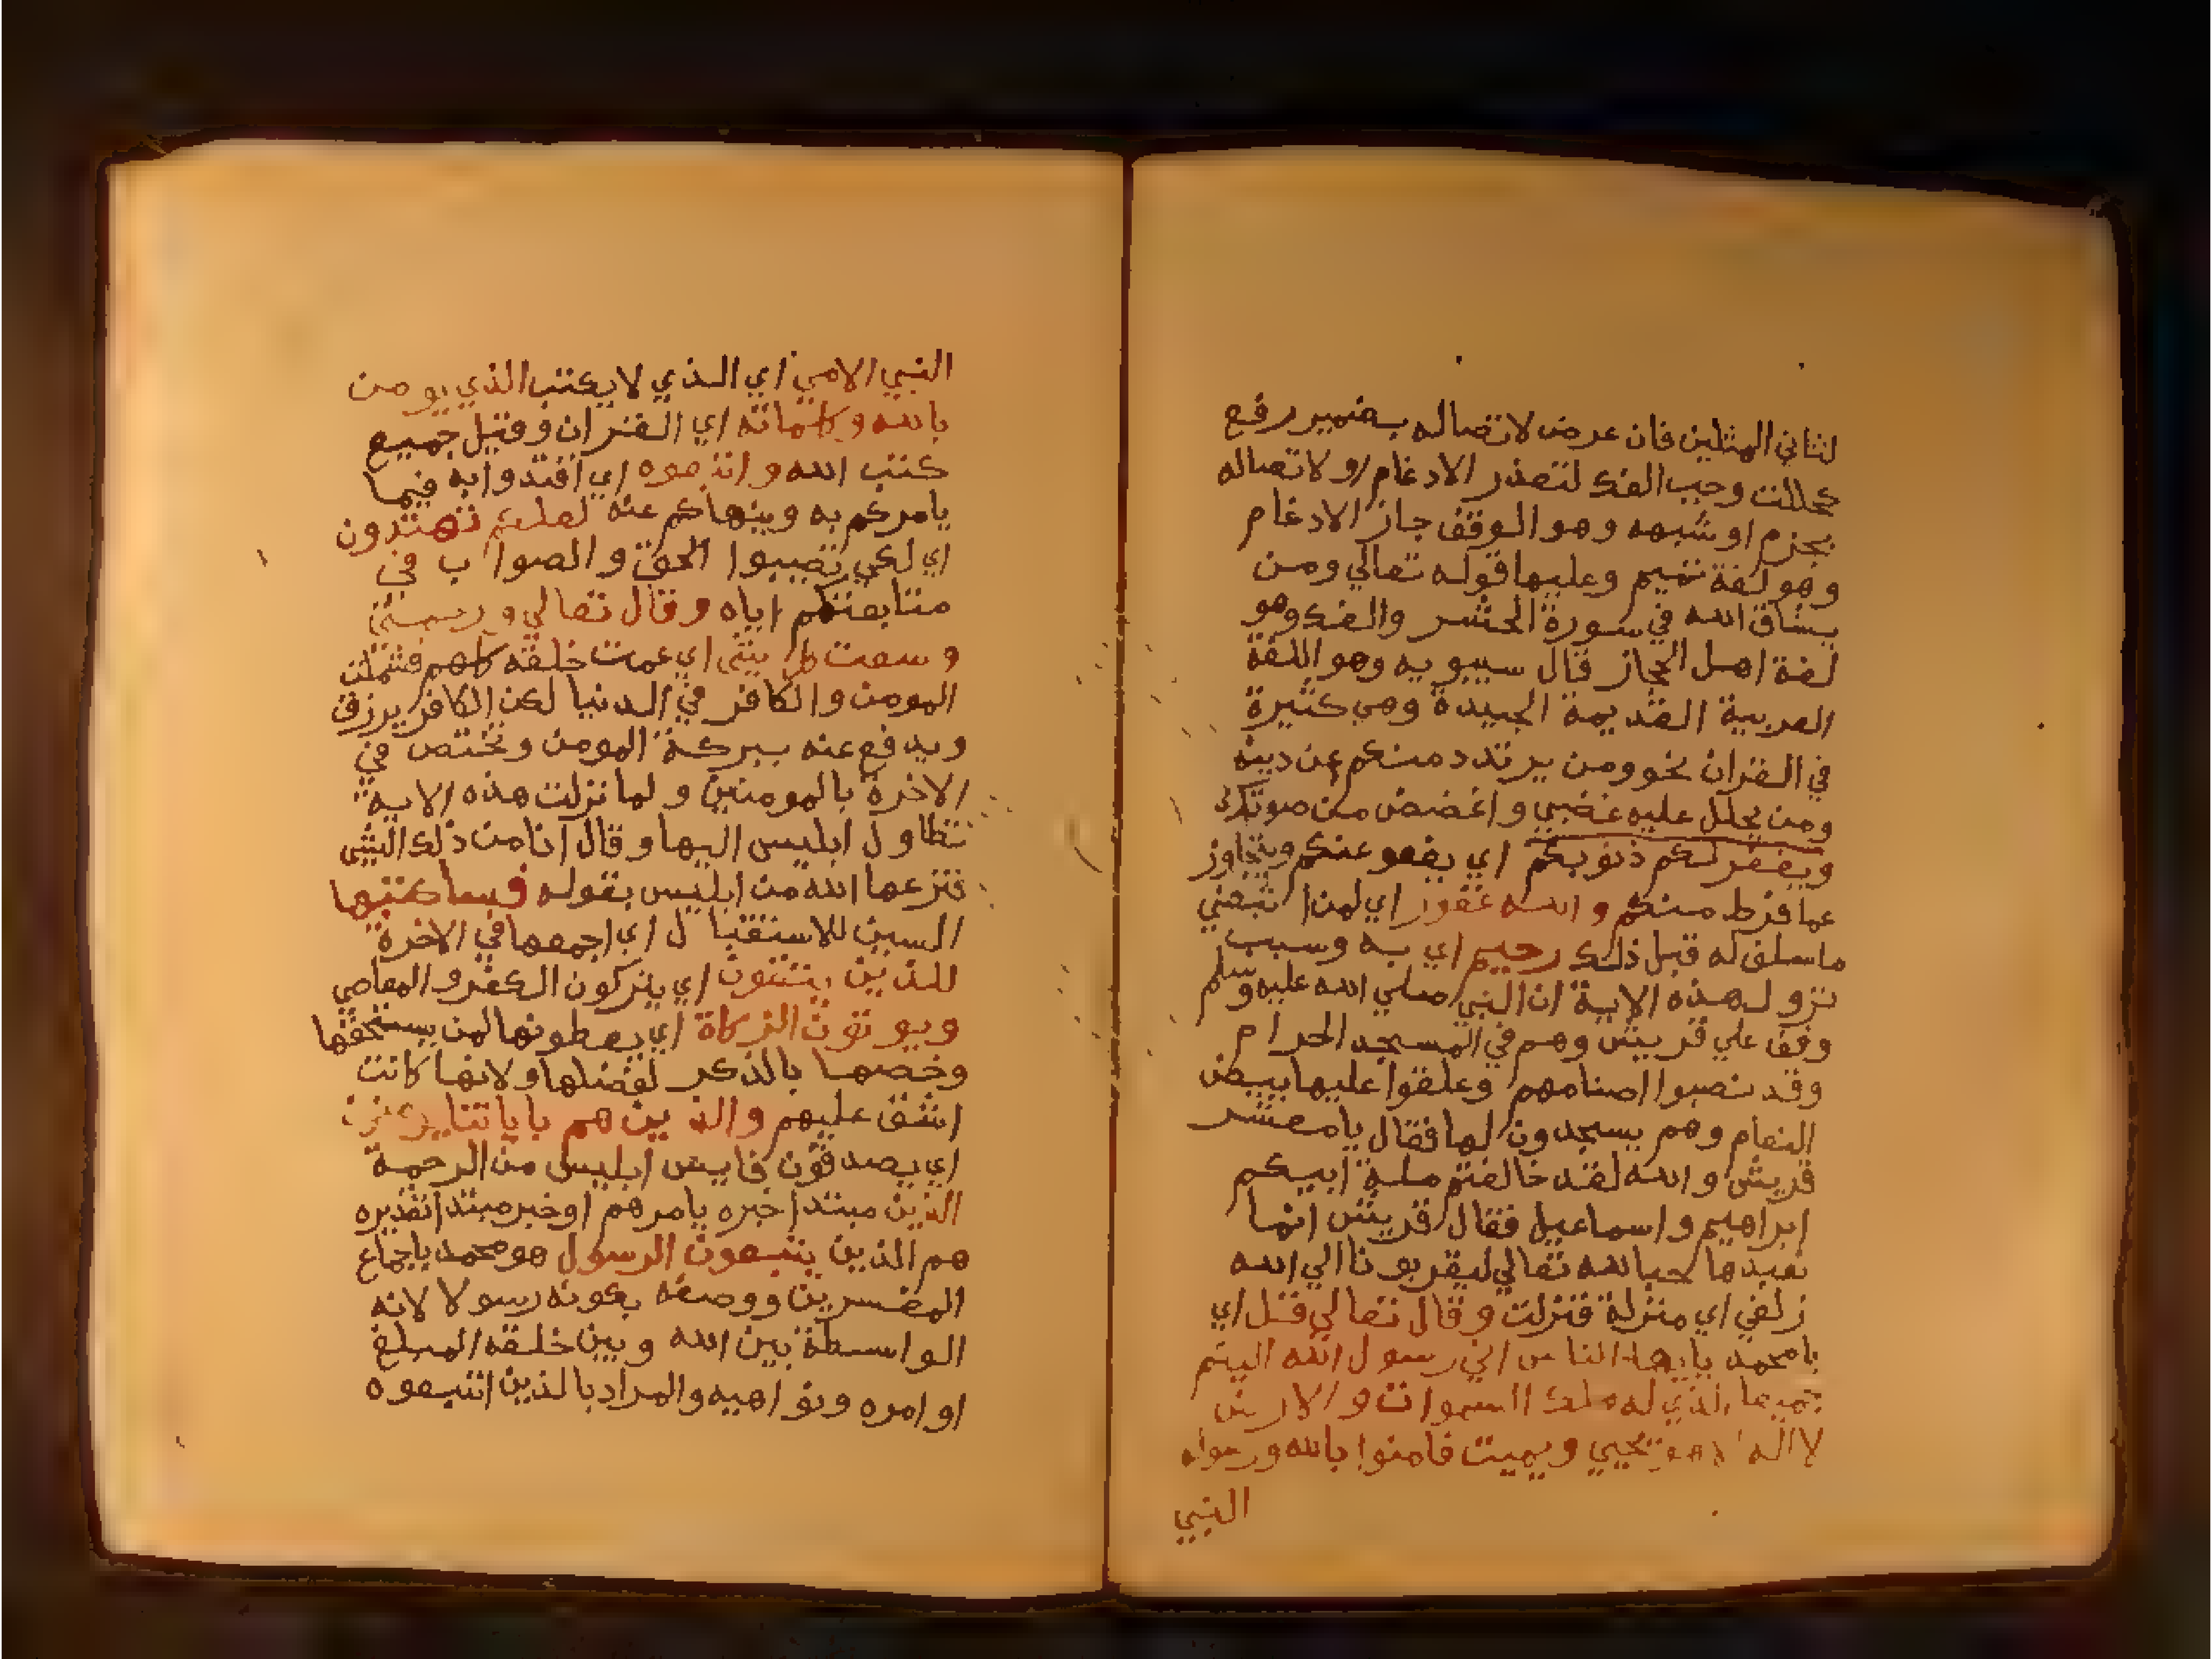 لثاني المثلين فان عرض لاتصاله بضمير رفع
كحللت وجب الفك لتعذر الادغام او لاتصاله
بجزم او شبهه وهو الوقف جاز الادغام
وهو لغة تميم وعليها قوله تعالي ومن
يشاق الله في سورة الحشر والفك وهو
لغة اهل الحجاز قال سيبويه وهو اللغة
العربية القديمة الجيدة وهي كثيرة
في القران نحو ومن يرتدد منكم عن دينه
ومن يحلل عليه غضبي واغضض من صوتك
ويغفر لكم ذنوبكم اي يعفو عنكم ويتجاوز
عما فرط منكم والله غفور اي لمن اتبعني
ما سلف له قبل ذلك رحيم اي به وسبب
نزول هذه الاية ان النبي صلي الله عليه وسلم
وقف علي قريش وهم في المسجد الحرام
وقد نصبوا اصنامهم وعلقوا عليها بيض
النعام وهم يسجدون لها فقال يا معشر
قريش والله لقد خالفتم ملة ابيكم
ابراهيم واسماعيل فقال قريش انما
نعبدها حبا لله تعالي ليقربونا الي الله
زلفي اي منزلة فنزلت وقال تعالي قل اي
يا محمد يايها الناس اني رسول الله اليكم
جميعا الذي له ملك السموات والارض
لا اله الا هو يحيي ويميت فامنوا بالله ورسوله
النبي
النبي الامي اي الذي لا يكتب الذي يومن
بالله وكلماته اي القران وقيل جميع
كتب الله واتبعوه اي اقتدوا به فيما
يامركم به وينهاكم عنه لعلكم تهتدون
اي لكي تصيبوا الحق والصواب في
متابعتكم اياه وقال تعالي ورحمتي
وسعت كل شي اي عمت خلقه كلهم فشملت
المومن والكافر في الدنيا لكن الكافر يرزق
ويدفع عنه ببركة المومن وتختص في
الاخرة بالمومنين ولما نزلت هذه الاية
تطاول ابليس اليها وقال انا من ذلك الشي
فنزعها الله من ابليس بقوله فساكتبها
السين للاستقبال اي اجمعها في الاخرة
للذين يتقون اي يتركون الكفر والمعاصي
ويوتون الزكاة اي يعطونها لمن يستحقها
وخصها بالذكر لفضلها ولانها كانت
اشق عليهم والذين هم باياتنا يومنون
اي يصدقون فايس ابليس من الرحمة
الذين مبتدا خبره يامرهم او خبر مبتدا تقديره
هم الذين يتبعون الرسول هو محمد باجماع
المفسرين ووصفه بكونه رسولا لانه
الواسطة بين الله وبين خلقه المبلغ
اوامره ونواهيه والمراد بالذين اتبعوه